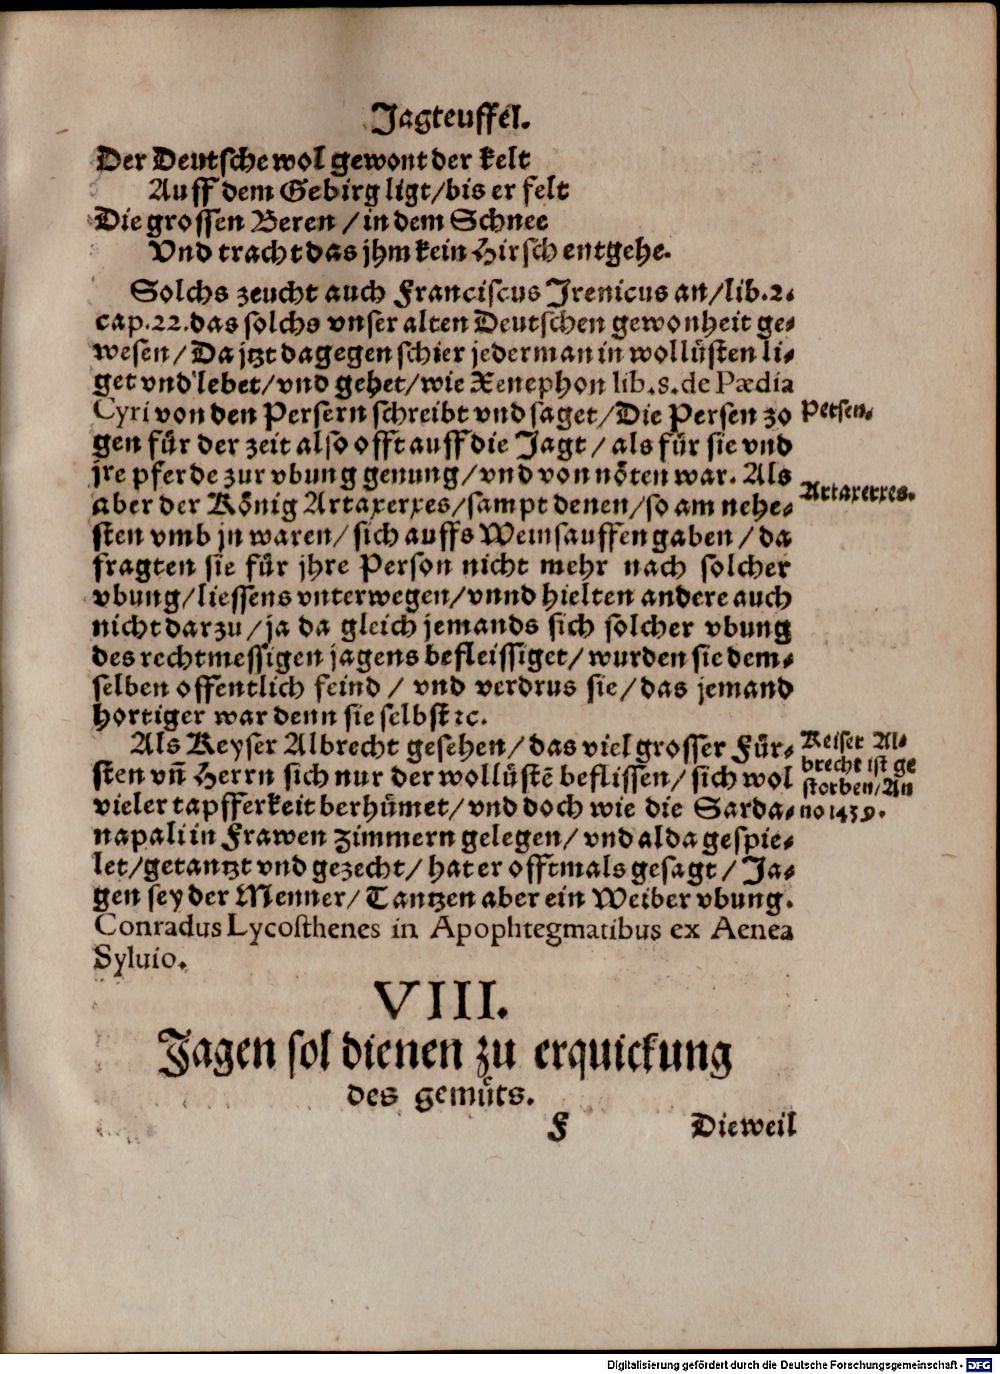 Jagteuffel.
Der Deutsche wol gewont der kelt
Auff dem Gebirg ligt/bis er felt
Die grossen Beren / in dem Schnee
Vnd tracht das jhm kein Hirsch entgehe.
Solchs zeucht auch Franciscus Irenicus an/lib.2.
cap.22.das solchs vnser alten Deutschen gewonheit ge-
wesen/ Da jtzt dagegen schier jederman in wollüsten li-
get vnd lebet/vnd gehet/wie Xenephon lib.8.de Pædia
Cyri von den Persern schreibt vnd saget/Die Persen zo
Persen.
gen für der zeit also offt auff die Jagt / als für sie vnd
jre pferde zur vbung genung/vnd von nöten war. Als
aber der König Artaxerxes/sampt denen/so am nehe-
Artaxerxes.
sten vmb jn waren/ sich auffs Weinsauffen gaben/da
fragten sie für jhre Person nicht mehr nach solcher
vbung/liessens vnterwegen/vnnd hielten andere auch
nicht darzu/ja da gleich jemands sich solcher vbung
des rechtmessigen jagens befleissiget/wurden sie dem-
selben offentlich feind / vnd verdrus sie/das jemand
hortiger war denn sie selbst ꝛc.
Als Keyser Albrecht gesehen/das viel grosser Für-
sten vñ Herrn sich nur der wollüstē beflissen/ sich wol
vieler tapfferkeit berhümet/vnd doch wie die Sarda-
Keiser Al-
brecht ist ge
storben/An
no 1439.
napali in Frawen zimmern gelegen/ vnd alda gespie-
let/getantzt vnd gezecht/ hat er offtmals gesagt/ Ja-
gen sey der Menner/ Tantzen aber ein Weiber vbung.
Conradus Lycosthenes in Apophtegmatibus ex Aenea
Syluio.
VIII.
Jagen sol dienen zu erquickung
des gemüts.
F
Dieweil
Digitalisierung gefördert durch die Deutsche Forschungsgemeinschaft - DFG